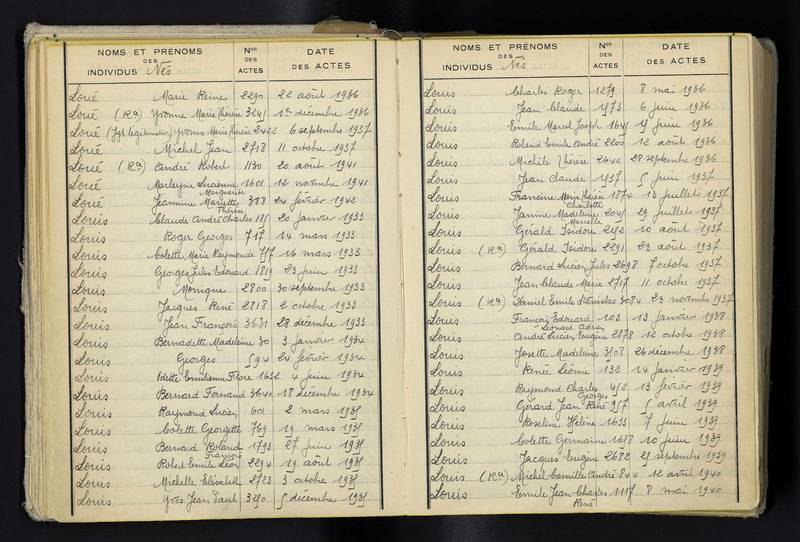 NOMS ET PRÉNOMS
DES
INDIVIDUS Nés
Nos
DES
ACTES
DATE
DES ACTES
Loué Marie Reine 2290 22 août 1936
Loué (Ra) Yvonne Marie Thérèse 3241 1er décembre 1936
Loué (Jgt légitimation) Yvonne Marie Thérèse 2422 6 septembre 1937
Loué Michel Jean 2718 11 octobre 1937
Loué (Ra) André Robert 1130 20 août 1941
Loué Marleyne Lucienne 1601 12 novembre 1941
Marguerite
Loué Jeannine Mariette 388 24 février 1942
Thérèse
Louis Claude André Charles 181 20 janvier 1933
Louis Roger Georges 717 14 mars 1933
Louis Colette Marie Raymonde 757 16 mars 1933
Louis Georges Jules Edouard 1819 23 juin 1933
Louis Monique 2800 30 septembre 1933
Louis Jacques René 2818 2 octobre 1933
Louis Jean François 3631 28 décembre 1933
Louis Bernadette Madeleine 30 3 janvier 1934
Louis Georges 594 24 février 1934
Louis Odette Emilienne Flore 1632 4 juin 1934
Louis Bernard Fernand 3640 18 décembre 1934
Louis Raymond Lucien 601 2 mars 1935
Louis Colette Georgette 769 19 mars 1935
Louis Bernard Roland 1793 27 juin 1935
François
Louis Robert Emile Léon 2294 19 août 1935
Louis Michelle Elisabeth 2723 3 octobre 1935
Louis Yves Jean Paul 3250 5 décembre 1935
NOMS ET PRÉNOMS
DES
INDIVIDUS Nés
Nos
DES
ACTES
DATE
DES ACTES
Louis Charles Roger 1279 8 mai 1936
Louis Jean Claude 1573 6 juin 1936
Louis Emile Marcel Joseph 1641 15 juin 1936
Louis Roland Emile André 2200 12 août 1936
Louis Michèle Thérèse 2642 28 septembre 1936
Louis Jean Claude 1537 5 juin 1937
Louis Francine Marie Thérèse 1874 13 juillet 1937
Charlotte
Louis Janine Madeleine 2041 29 juillet 1937
Marcelle
Louis Gérald Isidore 2152 10 août 1937
Louis (Ra) Gérald Isidore 2291 23 août 1937
Louis Bernard Lucien Jules 2698 7 octobre 1937
Louis Jean Claude Marie 2717 11 octobre 1937
Louis (Ra) Daniel Emile Stanislas 3084 23 novembre 1937
Louis François Edouard 103 13 janvier 1938
Léonard Adrien
Louis André Lucien Eugène 2878 12 octobre 1938
Louis Josette Madeleine 3508 26 décembre 1938
Louis Renée Léonie 132 14 janvier 1939
Louis Raymond Charles 452 13 février 1939
Georges
Louis Gérard Jean René 957 5 avril 1939
Louis Roseline Hélène 1633 7 juin 1939
Louis Colette Germaine 1688 10 juin 1939
Louis Jacques Eugène 2682 21 septembre 1939
Louis (Ra) Michel Camille André 844 12 avril 1940
Louis Emile Jean Charles 1115 8 mai 1940
René